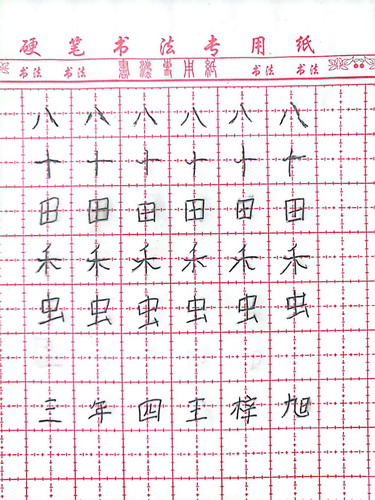 硬笔书法专用纸
书法 书法 書法専用紙 书法 书法
八 八 八 八 八 八
十 十 十 十 十 十
田 田 田 田 田 田
禾 禾 禾 禾 禾 禾
虫 虫 虫 虫 虫 虫
三 年 四 王 梓 旭